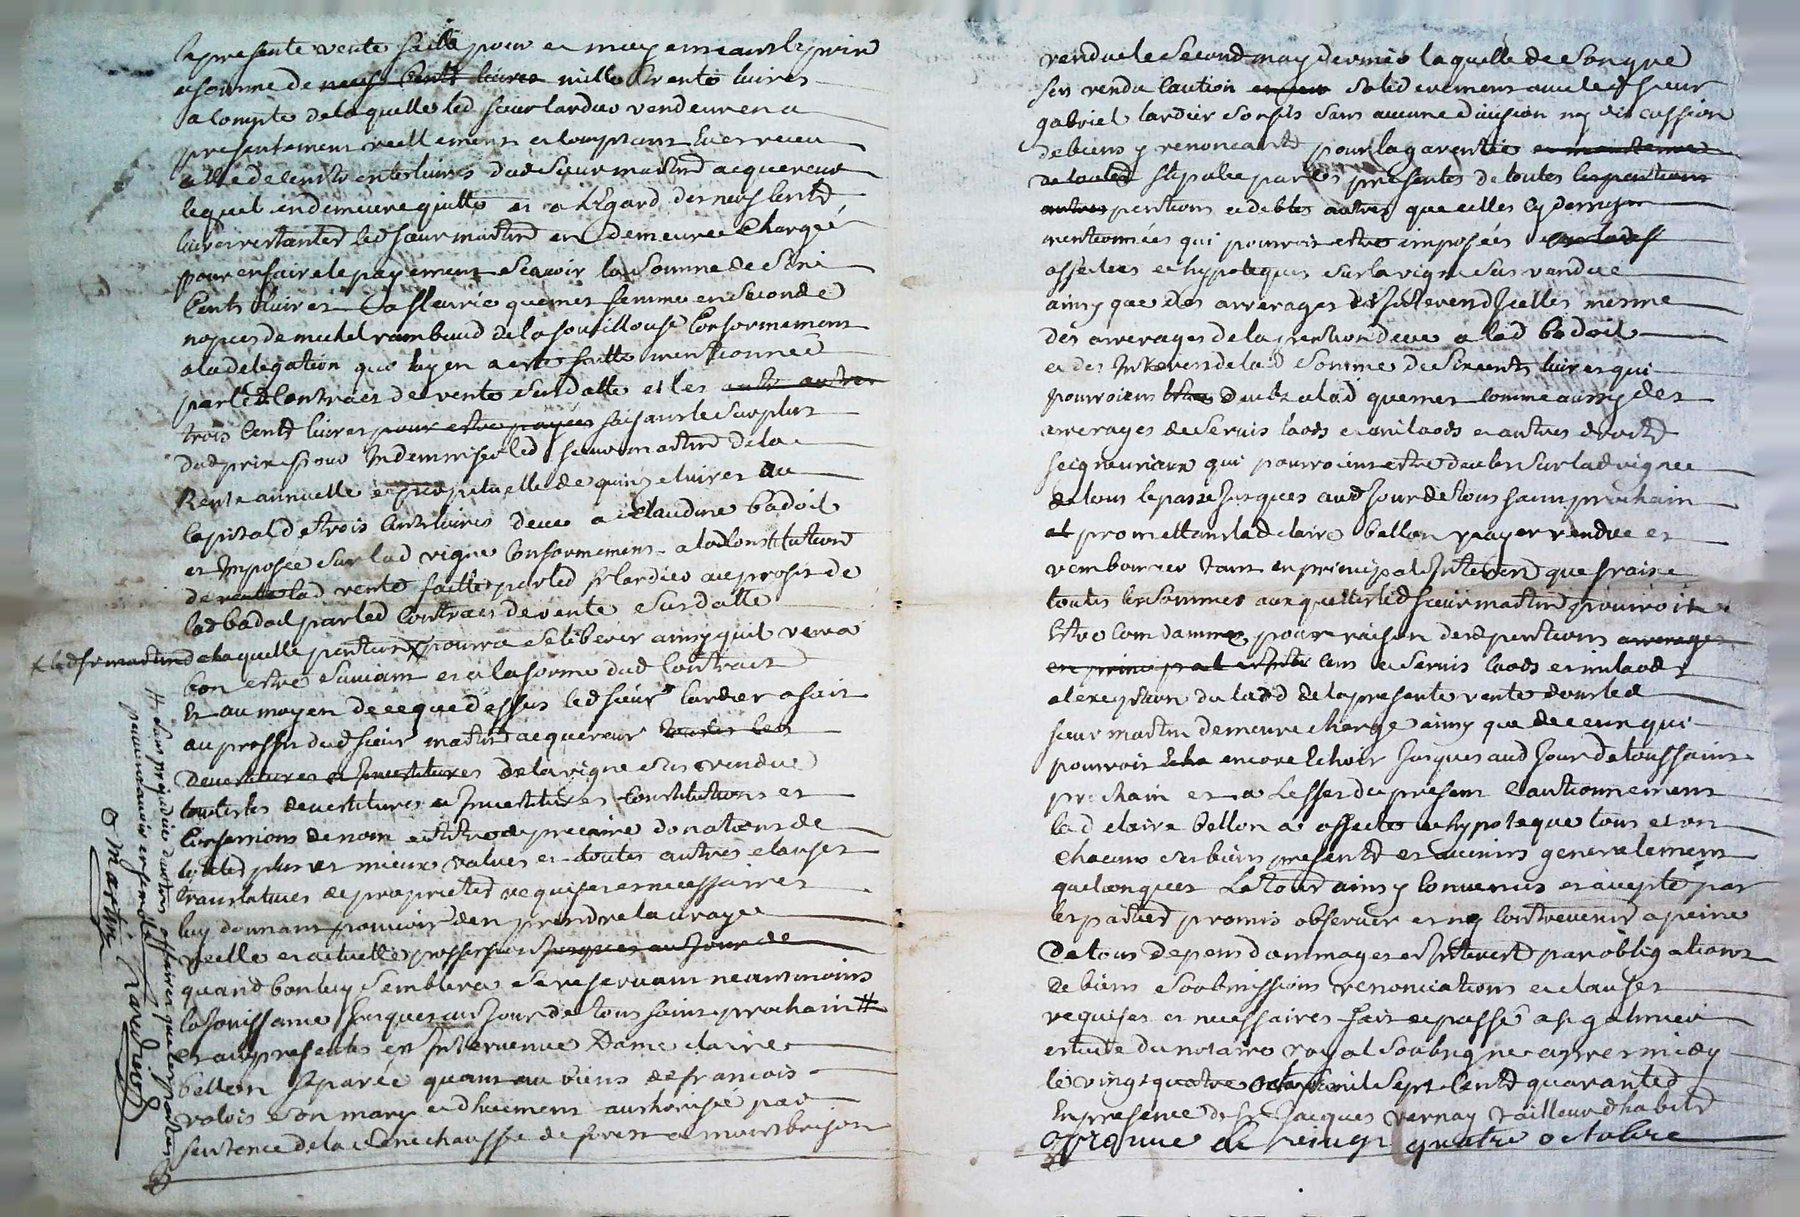 la presente vente faite pour et moyennant le prix
et somme de neuf cents livres mille trente livres
a compte de laquelle led sieur lardier vendeur en a
presentement reellement et comptant eu et receu
celle de cent trente livres dud sieur martin acquereur
lequel en demeure quitte et a l'Egard des neuf cents
livres restantes led sieur martin en demeure chargé
pour en faire le payement scavoir la somme de six
cents livres a fleurie quemet femme en seconde
nopces de michel rambaud de la fouillouse conformement
a la delegation que luy en a esté faitte mentionnée
par led contract de vente susdatte et les autres
trois cents livres pour estre payées faisant le surplus
dud prix pour indemniser led sieur martin de la
Rente annuelle et perpetuelle de quinze livres au
capital de trois cents livres deue a claudine badoil
et imposée sur lad vigne conformement a la constitution
de vente lad vente faitte par led sr lardier au profit de
lad badoil par led contract de vente susdatte
x led sr martin
de laquelle pention x pourra se liberer ainsy quil verra
bon estre suivant et a la forme dud contract
Et au moyen de ce que dessus led sieur lardier a fait
au proffit dud sieur martin acquereur toutes les
devestitures et investitures de la vigne sus vendue
touttes devestitures et investitures constitutions et
confessions de nom et titre de precaire donations de
touttes plus et mieux values et toutes autres clauses
translatives de proprieté requises et necessaires
luy donnant pouvoir d'en prendre la vraye
reelle et actuelle possession jusques au jour de
quand bon luy semblera se reservant neantmoins
la jouissance jusques au jour de tous saints prochain #
et aux presentes est intervenue Dame claire
bellon separée quant au biens de francois
valois son mary et dhuement authorisée par
sentence de la senechaussée de forest a montbrison
# sans prejudice d'autres affaires que les parties
pourroient avoir ensemble
Martin Lardier
vendue le second may dernier laquelle de son gre
s'est rendu caution solidairement avec led sieur
gabriel lardier son fils sans aucune division ny discussion
de biens y renoncant pour la garentie et maintenue
de lad stipulée par les presentes de toutes les pentions
autres pentions et debtes autres que celles cy dessus
mentionnées qui pourroit estre imposées
affectées et hypotequées sur la vigne sus vendue
ainsy que des arrerages d'icelles mesme
des arrerages de la pention deue a lad badoil
et des interests de lad somme de six cents livres qui
pourroient estre deubs a lad quemet comme aussy des
arrerages de servis laods et milaods et autres droits
seigneuriaux qui pourroient estre deubs sur lad vigne
de tous le passé jusques aud jour de tous saints prochain
et promettant lad claire bellon payer rendre et
rembourcer tant en principal interest que fraix
toutes les sommes auxquelles led sieur martin pourroit
Estre condamné pour raison desd pentions arrerages
en principal interest cens et servis laods et milaods
a l'exeption du laod de la presente vente dont led
sieur martin demeure chargé ainsy que de ceux qui
pourroit echo encore Echoir jusques aud jour de toussaint
prochain et a L'effet du present cautionnement
lad claire bellon a affecté et hypotequé tous et un
chacuns ses biens presents et avenirs generalement
quelconques Le tout ainsy convenus et accepté par
les parties promis observer et ny contrevenir a peine
de tous depens dommages et interests par obligations
de biens soubmissions renonciations et clauses
requises et necessaires fait et passé a st galmier
estude du notaire royal soubsigné apres midy
le vingt quatre octobre mil sept cents quarante
En presence de sr Jacques vernay tailleur d'habits
approuvé le vingt quatre octobre